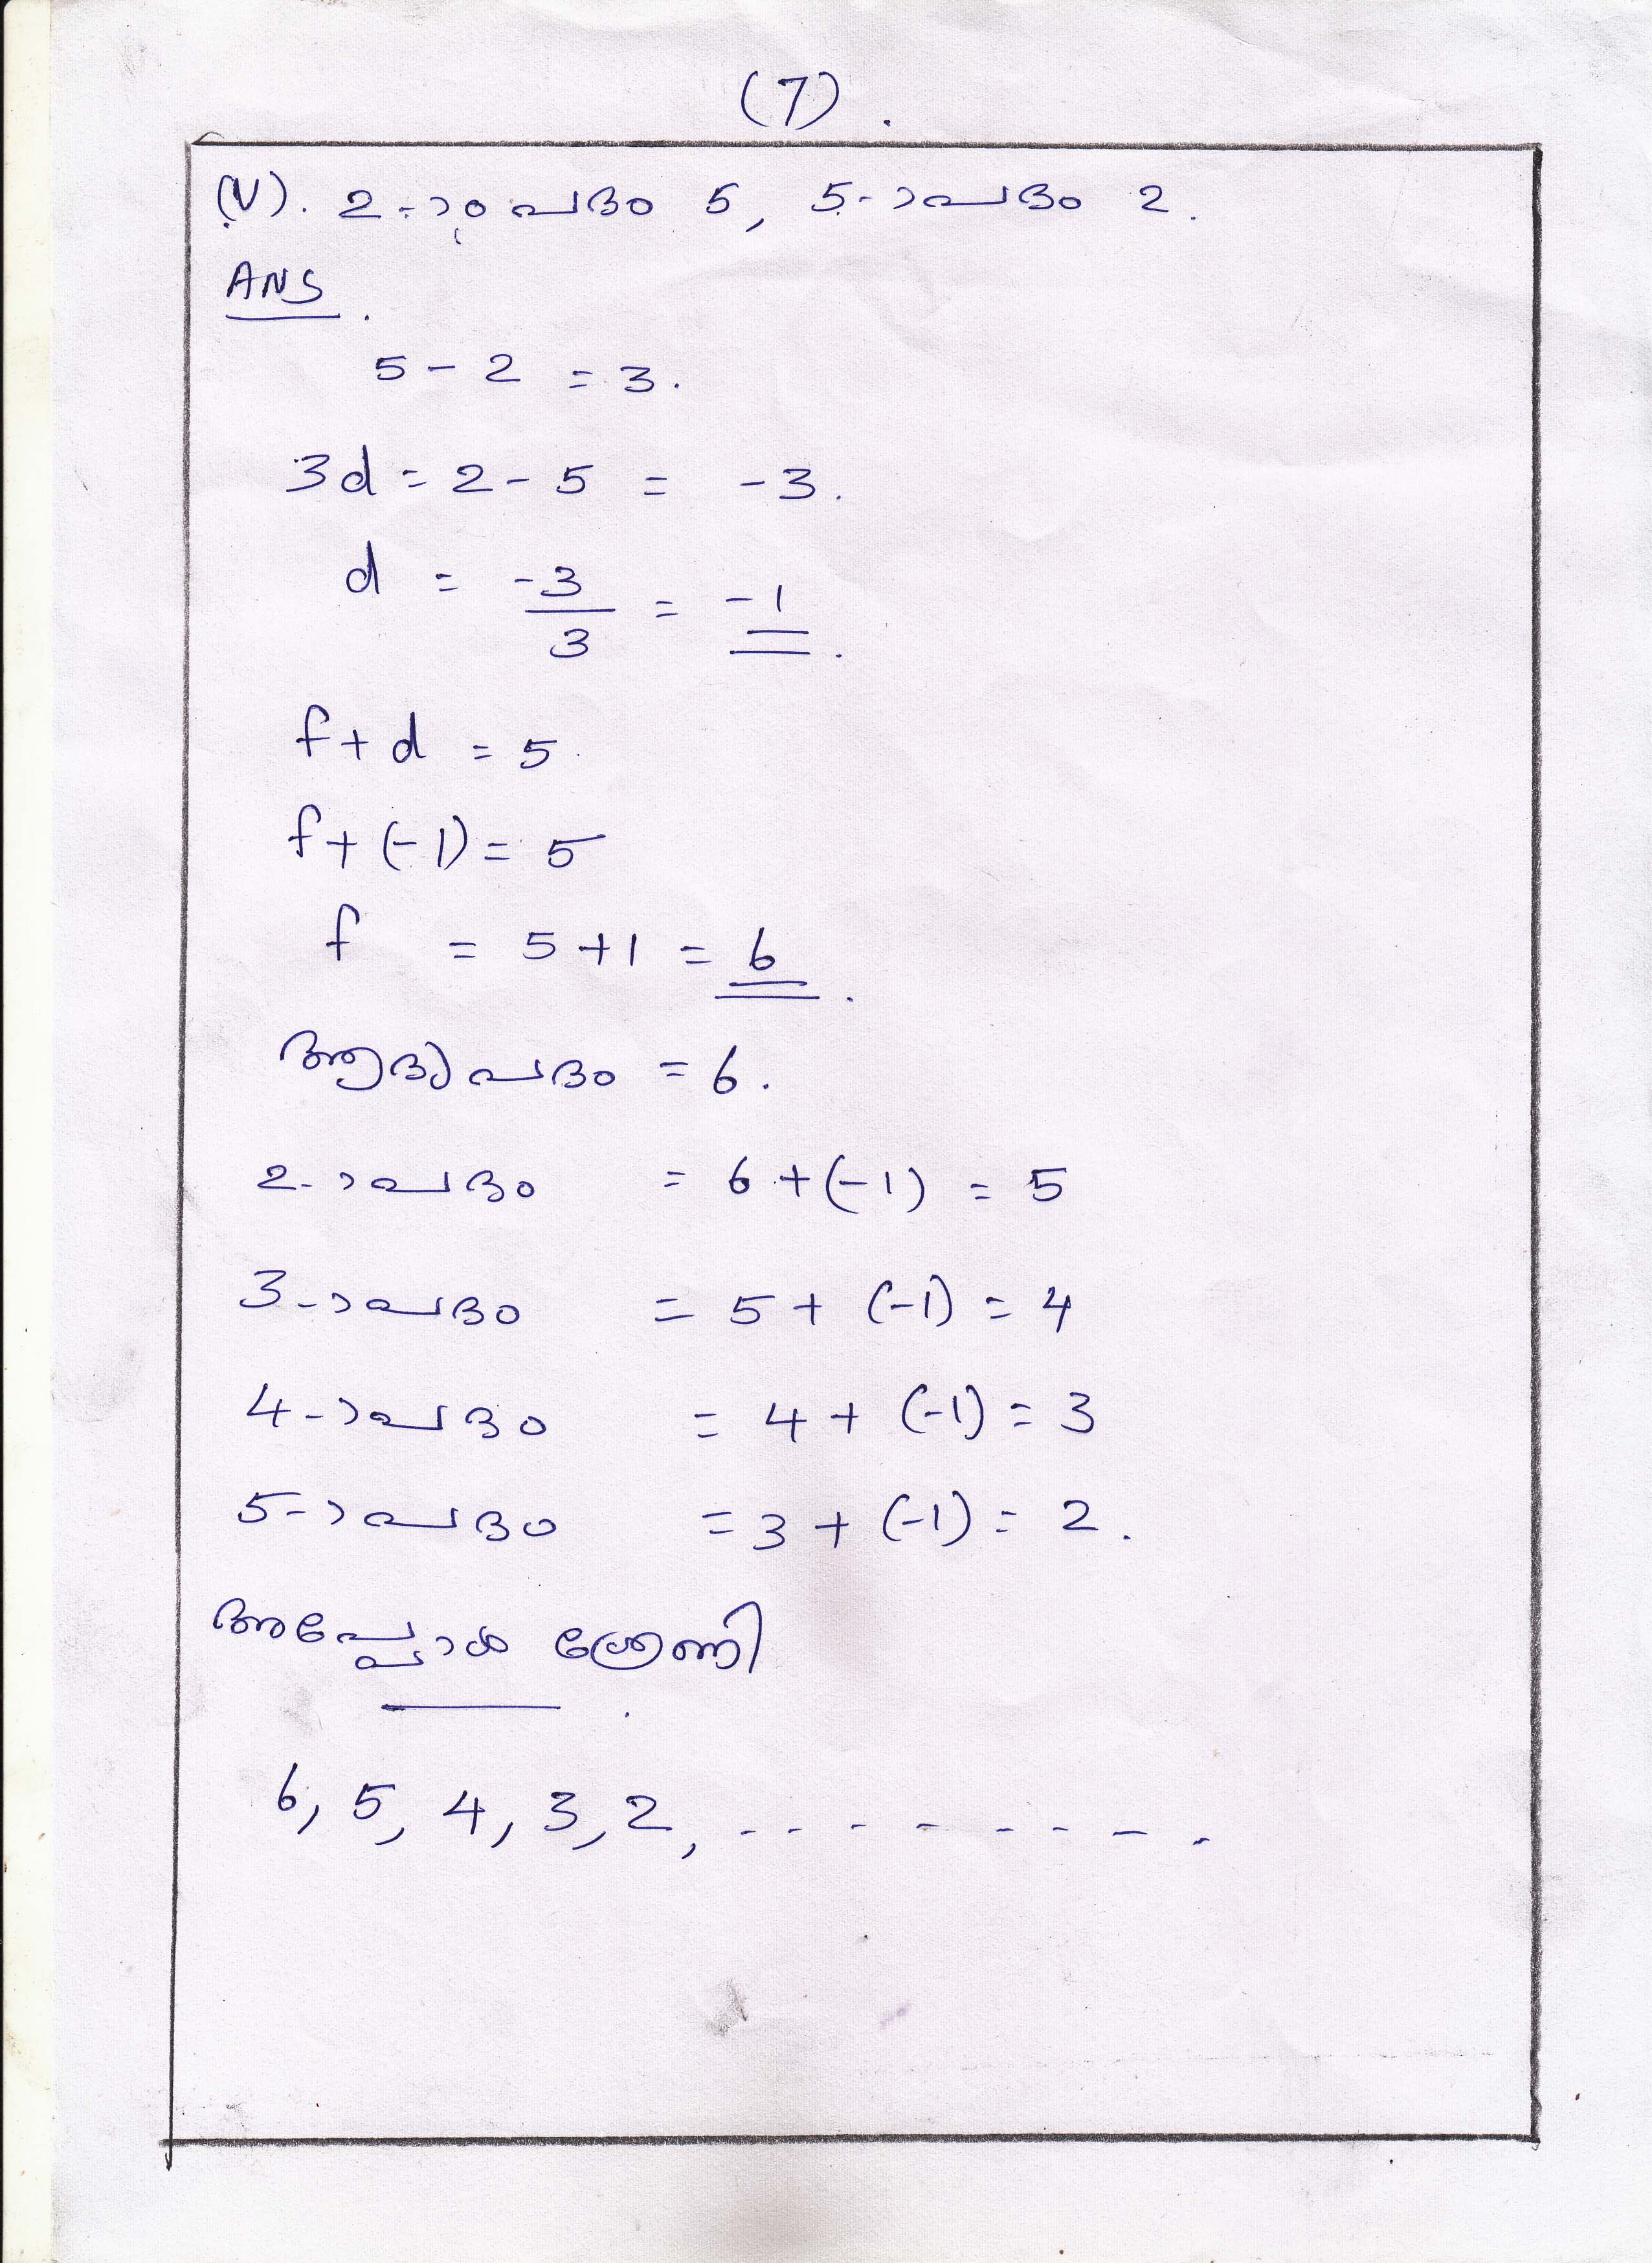 (7).
(V). 2-ാം പദം 5, 5-ാപദം 2.
ANS.
5 - 2 = 3.
3d = 2 - 5 = -3.
d = -3/3 = -1.
f + d = 5.
f + (-1) = 5
f = 5 + 1 = 6.
ആദ്യപദം = 6.
2-ാപദം = 6 + (-1) = 5
3-ാപദം = 5 + (-1) = 4
4-ാപദം = 4 + (-1) = 3
5-ാപദം = 3 + (-1) = 2.
അപ്പോൾ ശ്രേണി
6, 5, 4, 3, 2, - - - - - - - - .